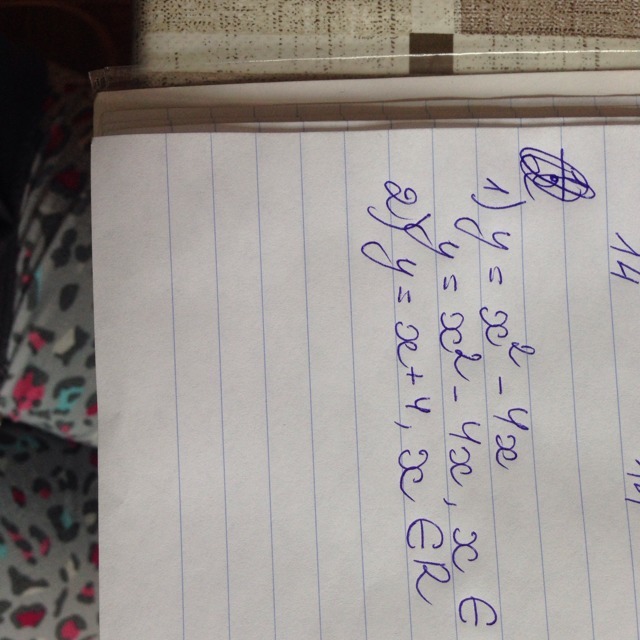 14
14
1) y = x² - 4x
2) y = x² - 4x, x ∈
y = x + 4, x ∈ R